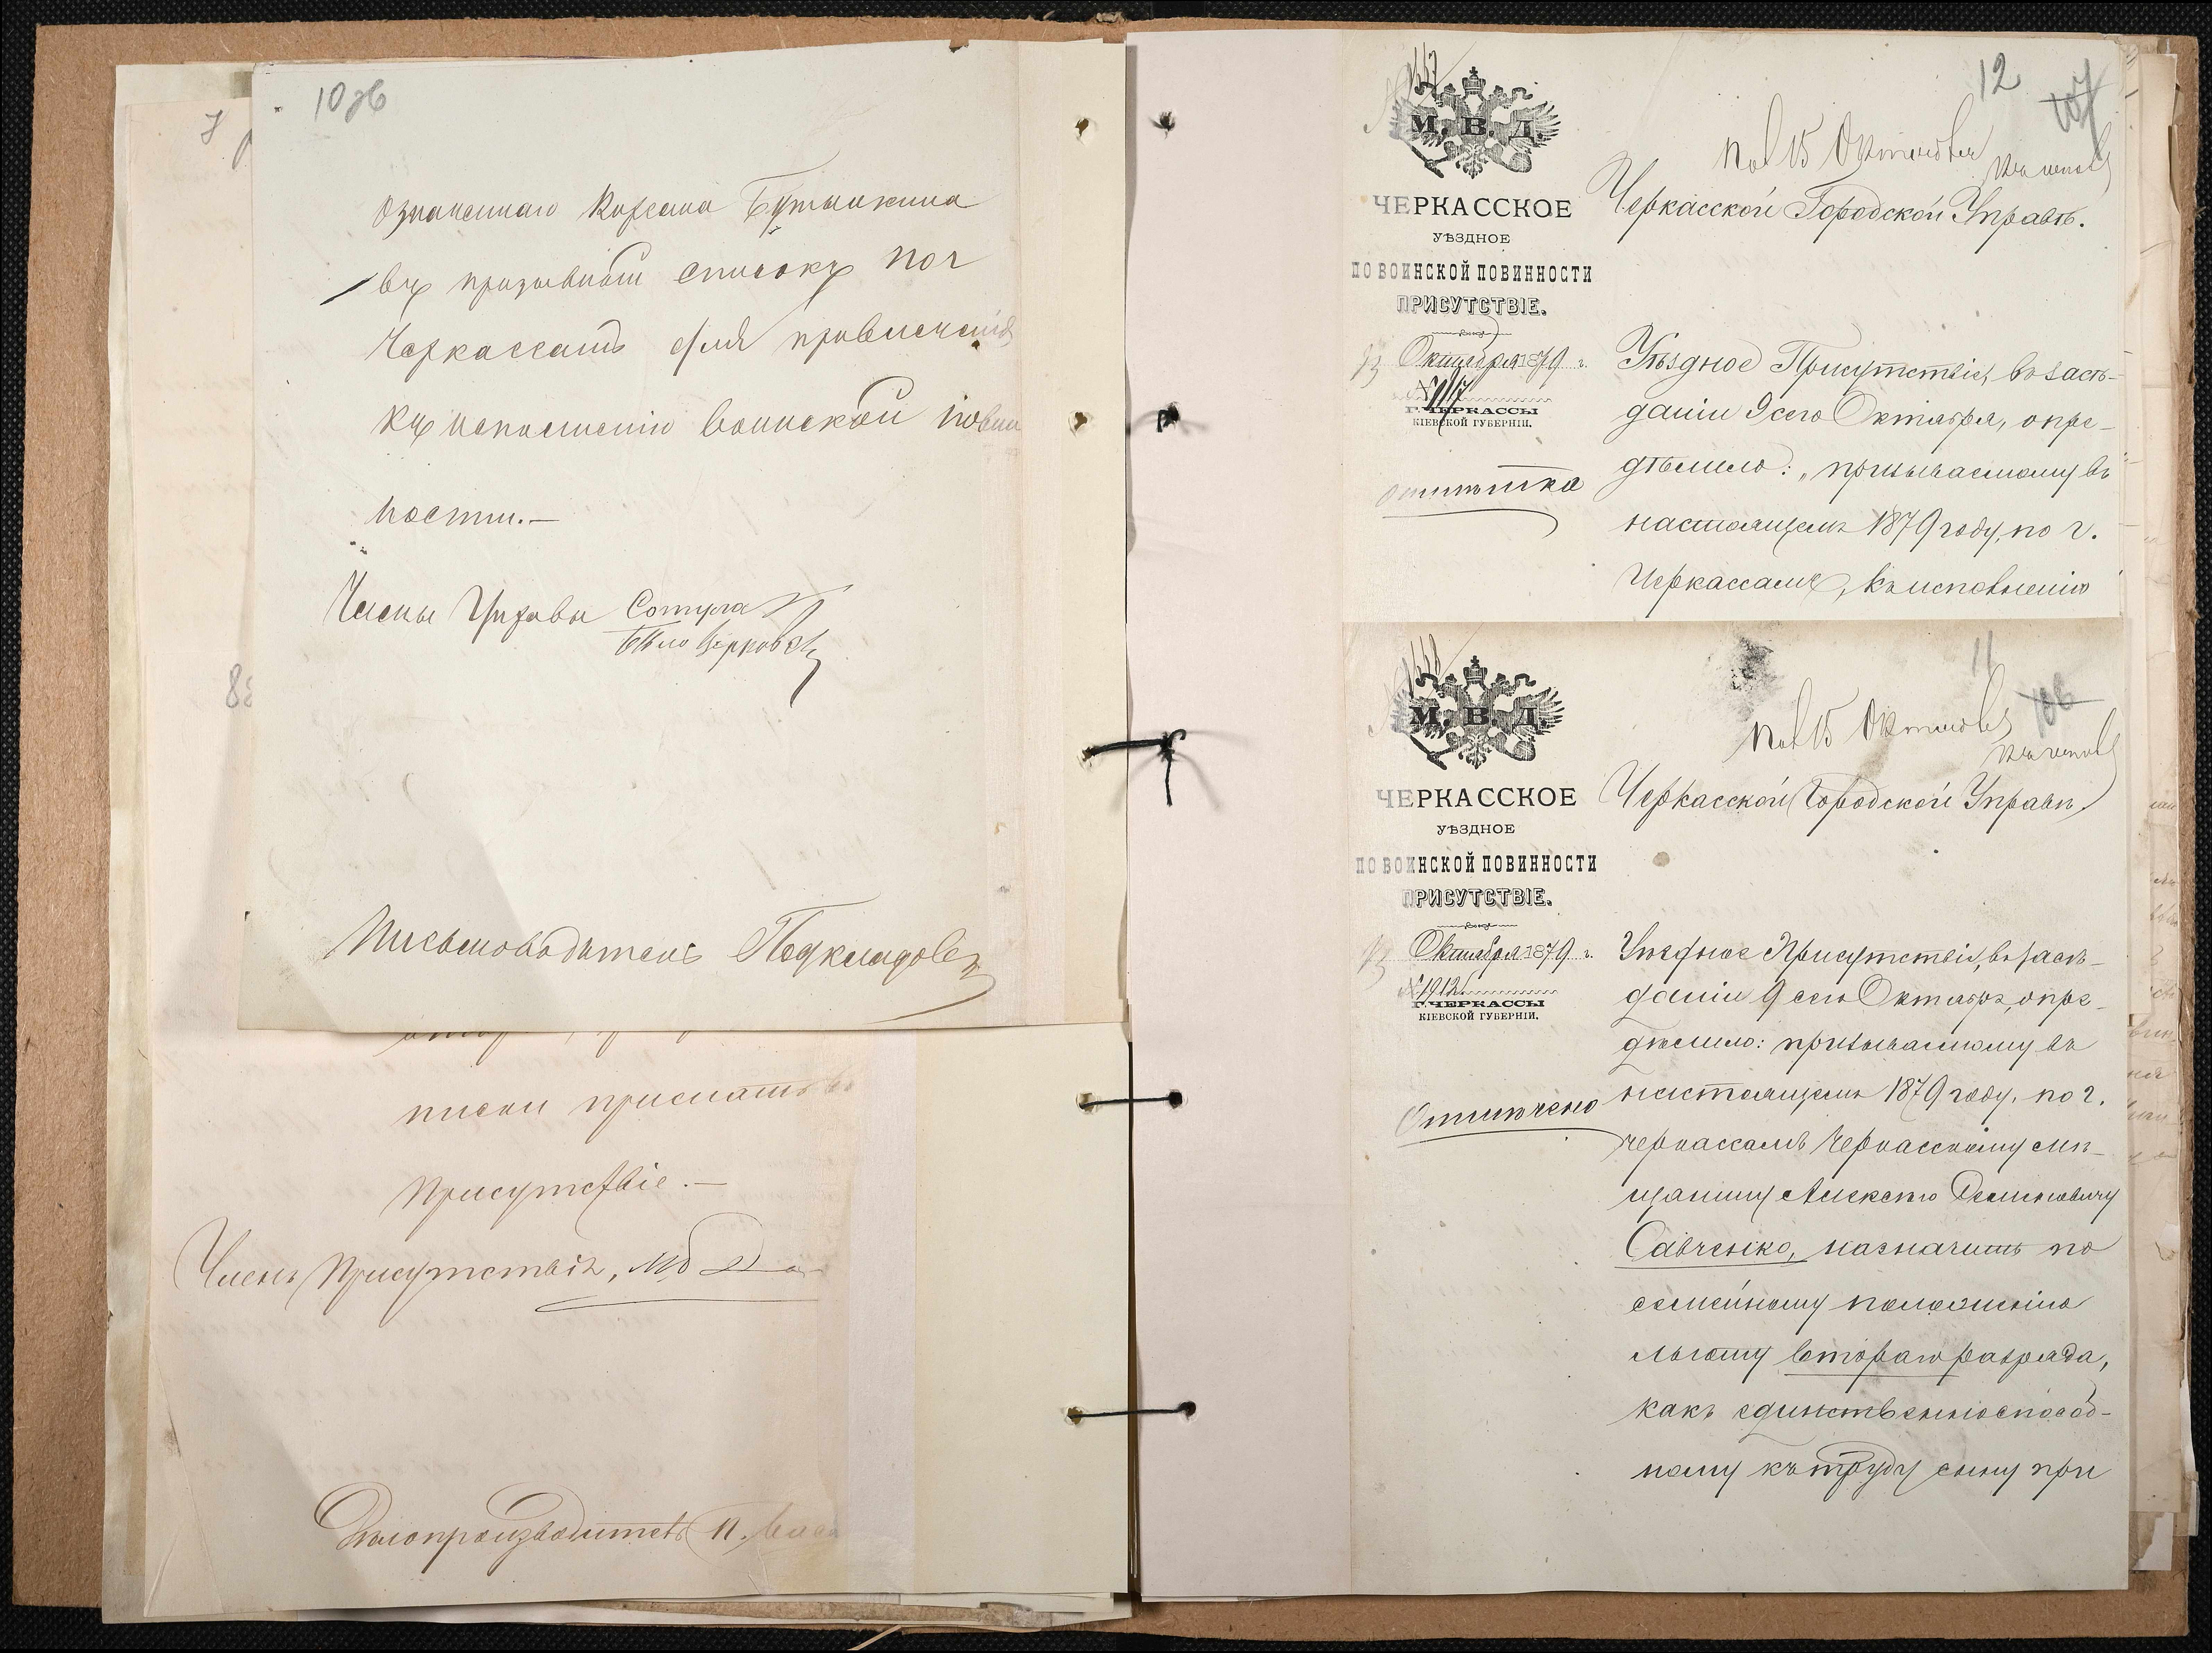 10 об
означеннаго Корсана Бутылкина
въ призывной списокъ по г
Черкассамъ для привлеченія
къ исполненію воинской повин
ности.—
Члены Управы
Бѣлоцерковец
Письмоводитель Подкладовъ
писки прислать въ
Присутствіе.—
Членъ Присутствія,
Дѣлопроизводитель П.
12
М. В. Д.
Пол 15 Октября
ЧЕРКАССКОЕ
УѢЗДНОЕ
ПО ВОИНСКОЙ ПОВИННОСТИ
ПРИСУТСТВІЕ.
13 Октября 1879 г.
Г. ЧЕРКАССЫ
КІЕВСКОЙ ГУБЕРНІИ.
Черкасской Городской Управѣ.
Уѣздное Присутствіе, въ засѣ-
даніи 9 сего Октября, опре-
дѣлило: „призываемому въ
настоящемъ 1879 году, по г.
Черкассамъ, къ исполненію
11
106
М. В. Д.
Пол 15 Октября
ЧЕРКАССКОЕ
УѢЗДНОЕ
ПО ВОИНСКОЙ ПОВИННОСТИ
ПРИСУТСТВІЕ.
13 Октября 1879 г.
№ 1912
Г. ЧЕРКАССЫ
КІЕВСКОЙ ГУБЕРНІИ.
Отмѣчено
Черкасской Городской Управѣ
Уѣздное Присутствіе, въ засѣ-
даніи 9 сего Октября, опре-
дѣлило: призываемому въ
настоящемъ 1879 году, по г.
Черкассамъ Черкасскому мѣ-
щанину Алексѣю Семеновичу
Савченко, назначить по
семейному положенію
льготу втораго разряда,
какъ единственно способ-
ному къ труду сыну при